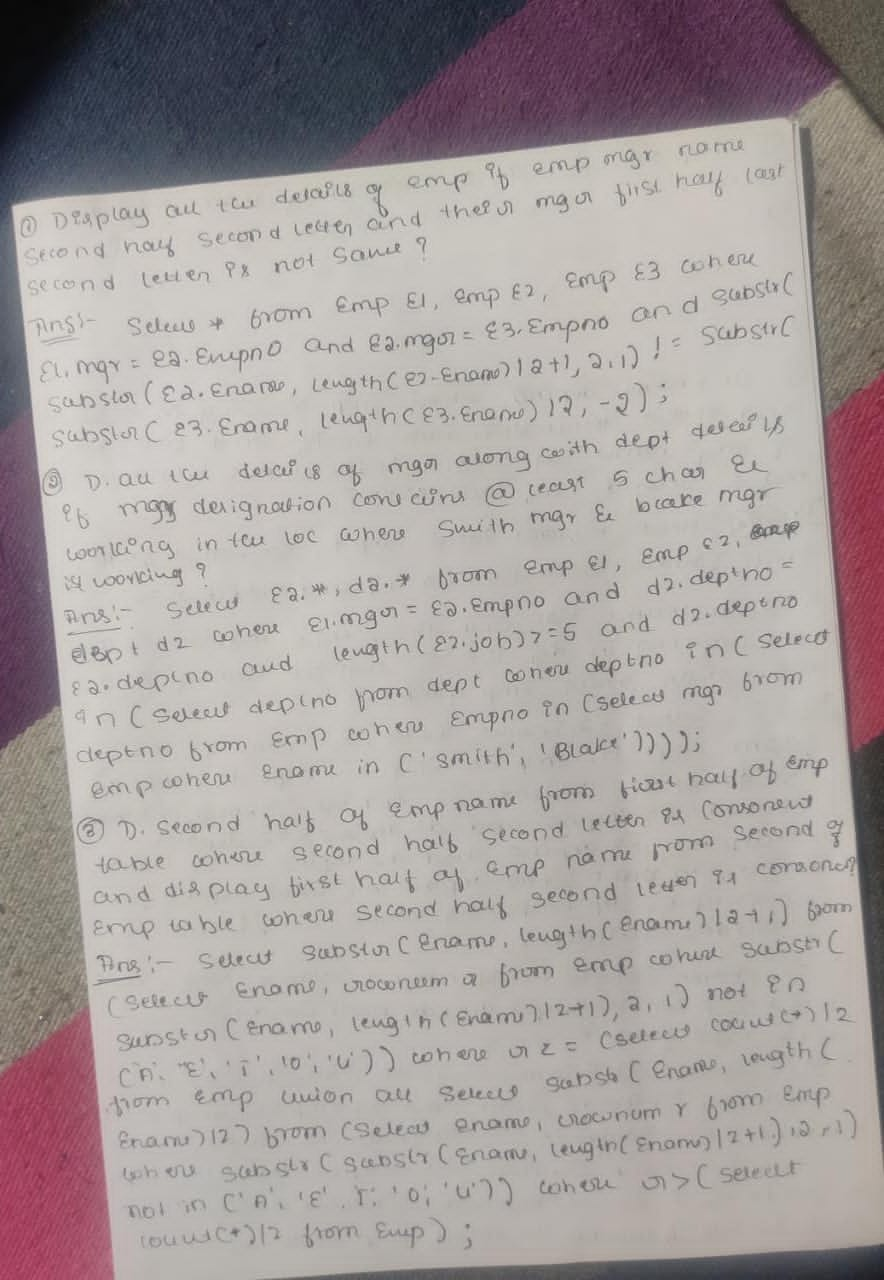 ① Display all the details of emp if emp mgr name
second half second letter and their mgr first half last
second letter is not same ?
Ans:- Select * from Emp E1, Emp E2, Emp E3 where
E1.mgr = E2.Empno and E2.mgr = E3.Empno and substr(
substr(E2.Ename, length(E2.Ename)/2+1, 2,1) != substr(
substr(E3.Ename, length(E3.Ename)/2, -2);
② D. all the details of mgr along with dept details
if mgr designation contains @ least 5 char &
working in the loc where Smith mgr & blake mgr
is working ?
Ans:- Select E2.*, d2.* from emp E1, Emp E2,
dept d2 where E1.mgr = E2.Empno and d2.deptno =
E2.deptno and length(E2.job)>=5 and d2.deptno
in (Select deptno from dept where deptno in (Select
deptno from Emp where Empno in (Select mgr from
emp where Ename in ('Smith', 'Blake'))));
③ D. Second half of Emp name from first half of Emp
table where second half second letter is Consonent
and display first half of emp name from second of
Emp table where second half second letter is consonent?
Ans:- Select Substr(Ename, length(Ename)/2+1) from
(Select Ename, rownum r from Emp where Substr(
Substr(Ename, length(Ename)/2+1), 2, 1) not in
('A', 'E', 'I', 'O', 'U')) where r <= (select count(*)/2
from Emp union all Select Substr(Ename, length(
Ename)/2) from (Select Ename, rownum r from Emp
where substr(substr(Ename, length(Ename)/2+1),2,1)
not in ('A', 'E', 'I', 'O', 'U')) where r>(Select
count(*)/2 from Emp);